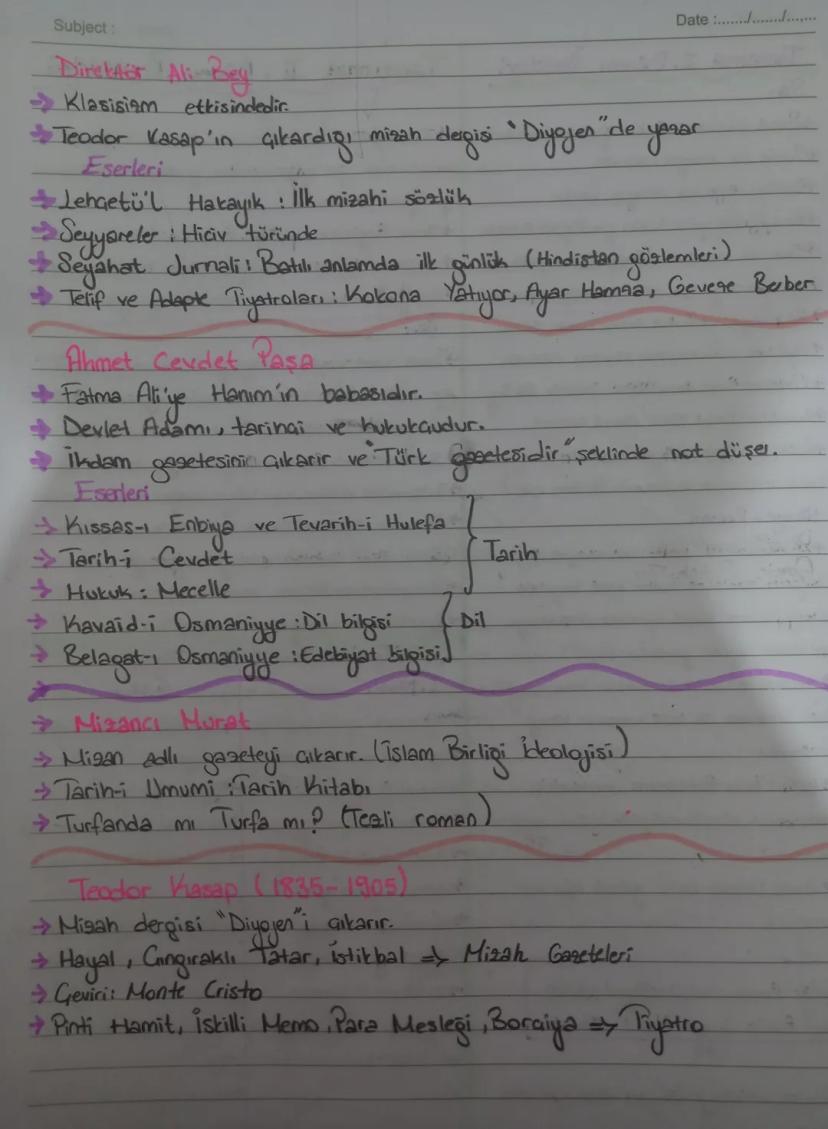 Subject :
Date :......../......../........
Direktör Ali Bey
→ Klasisizm etkisindedir.
→ Teodor Kasap'ın çıkardığı mizah dergisi "Diyojen"de yazar
Eserleri
→ Lehçetü'l Hakayık : İlk mizahi sözlük
→ Seyyareler : Hiciv türünde
→ Seyahat Jurnali : Batılı anlamda ilk günlük (Hindistan gözlemleri)
→ Telif ve Adapte Tiyatroları : Kokona Yatıyor, Ayar Hamza, Geveze Berber
Ahmet Cevdet Paşa
→ Fatma Ali'ye Hanım'ın babasıdır.
→ Devlet Adamı, tarihçi ve hukukçudur.
→ İkdam gazetesini çıkarır ve "Türk gazetesidir" şeklinde not düşer.
Eserleri
→ Kıssas-ı Enbiya ve Tevarih-i Hulefa
→ Tarih-i Cevdet
Tarih
→ Hukuk : Mecelle
→ Kavaid-i Osmaniyye : Dil bilgisi
Dil
→ Belagat-ı Osmaniyye : Edebiyat bilgisi
→ Mizancı Murat
→ Mizan adlı gazeteyi çıkarır. (İslam Birliği İdeolojisi)
→ Tarih-i Umumi : Tarih Kitabı
→ Turfanda mı Turfa mı? (Tezli roman)
Teodor Kasap (1835-1905)
→ Mizah dergisi "Diyojen"i çıkarır.
→ Hayal, Çıngıraklı Tatar, İstikbal ⇒ Mizah Gazeteleri
→ Çeviri: Monte Cristo
→ Pinti Hamit, İskilli Memo, Para Mesleği, Borciya ⇒ Tiyatro